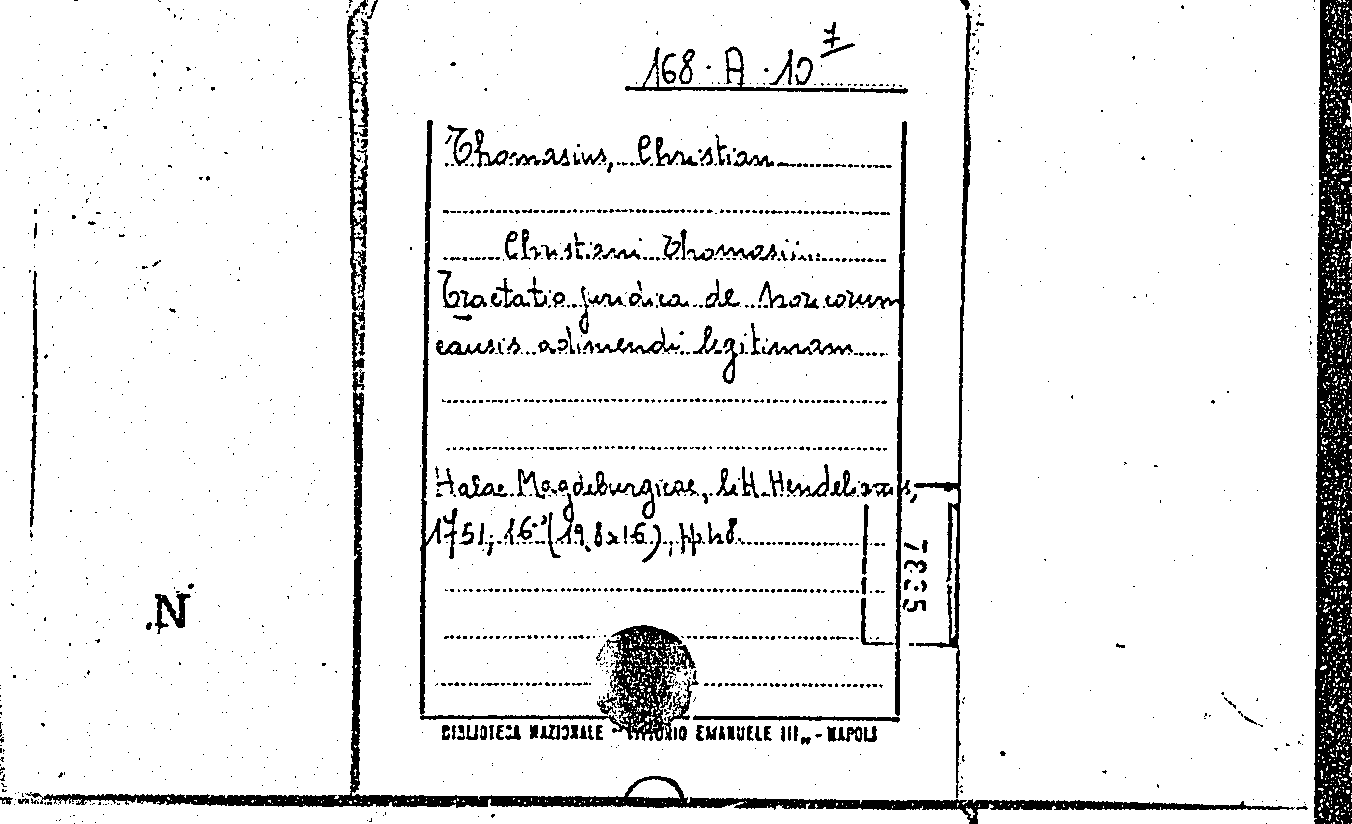 168·A·10 7
Thomasius, Christian
Christiani Thomasii
Tractatio juridica de
causis adimendi legitimam
Halae Magdeburgicae, litt. Hendelianis,
1751, 16° (19,8x16), pp. 48
7835
.N
BIBLIOTECA NAZIONALE "VITTORIO EMANUELE III„ - NAPOLI